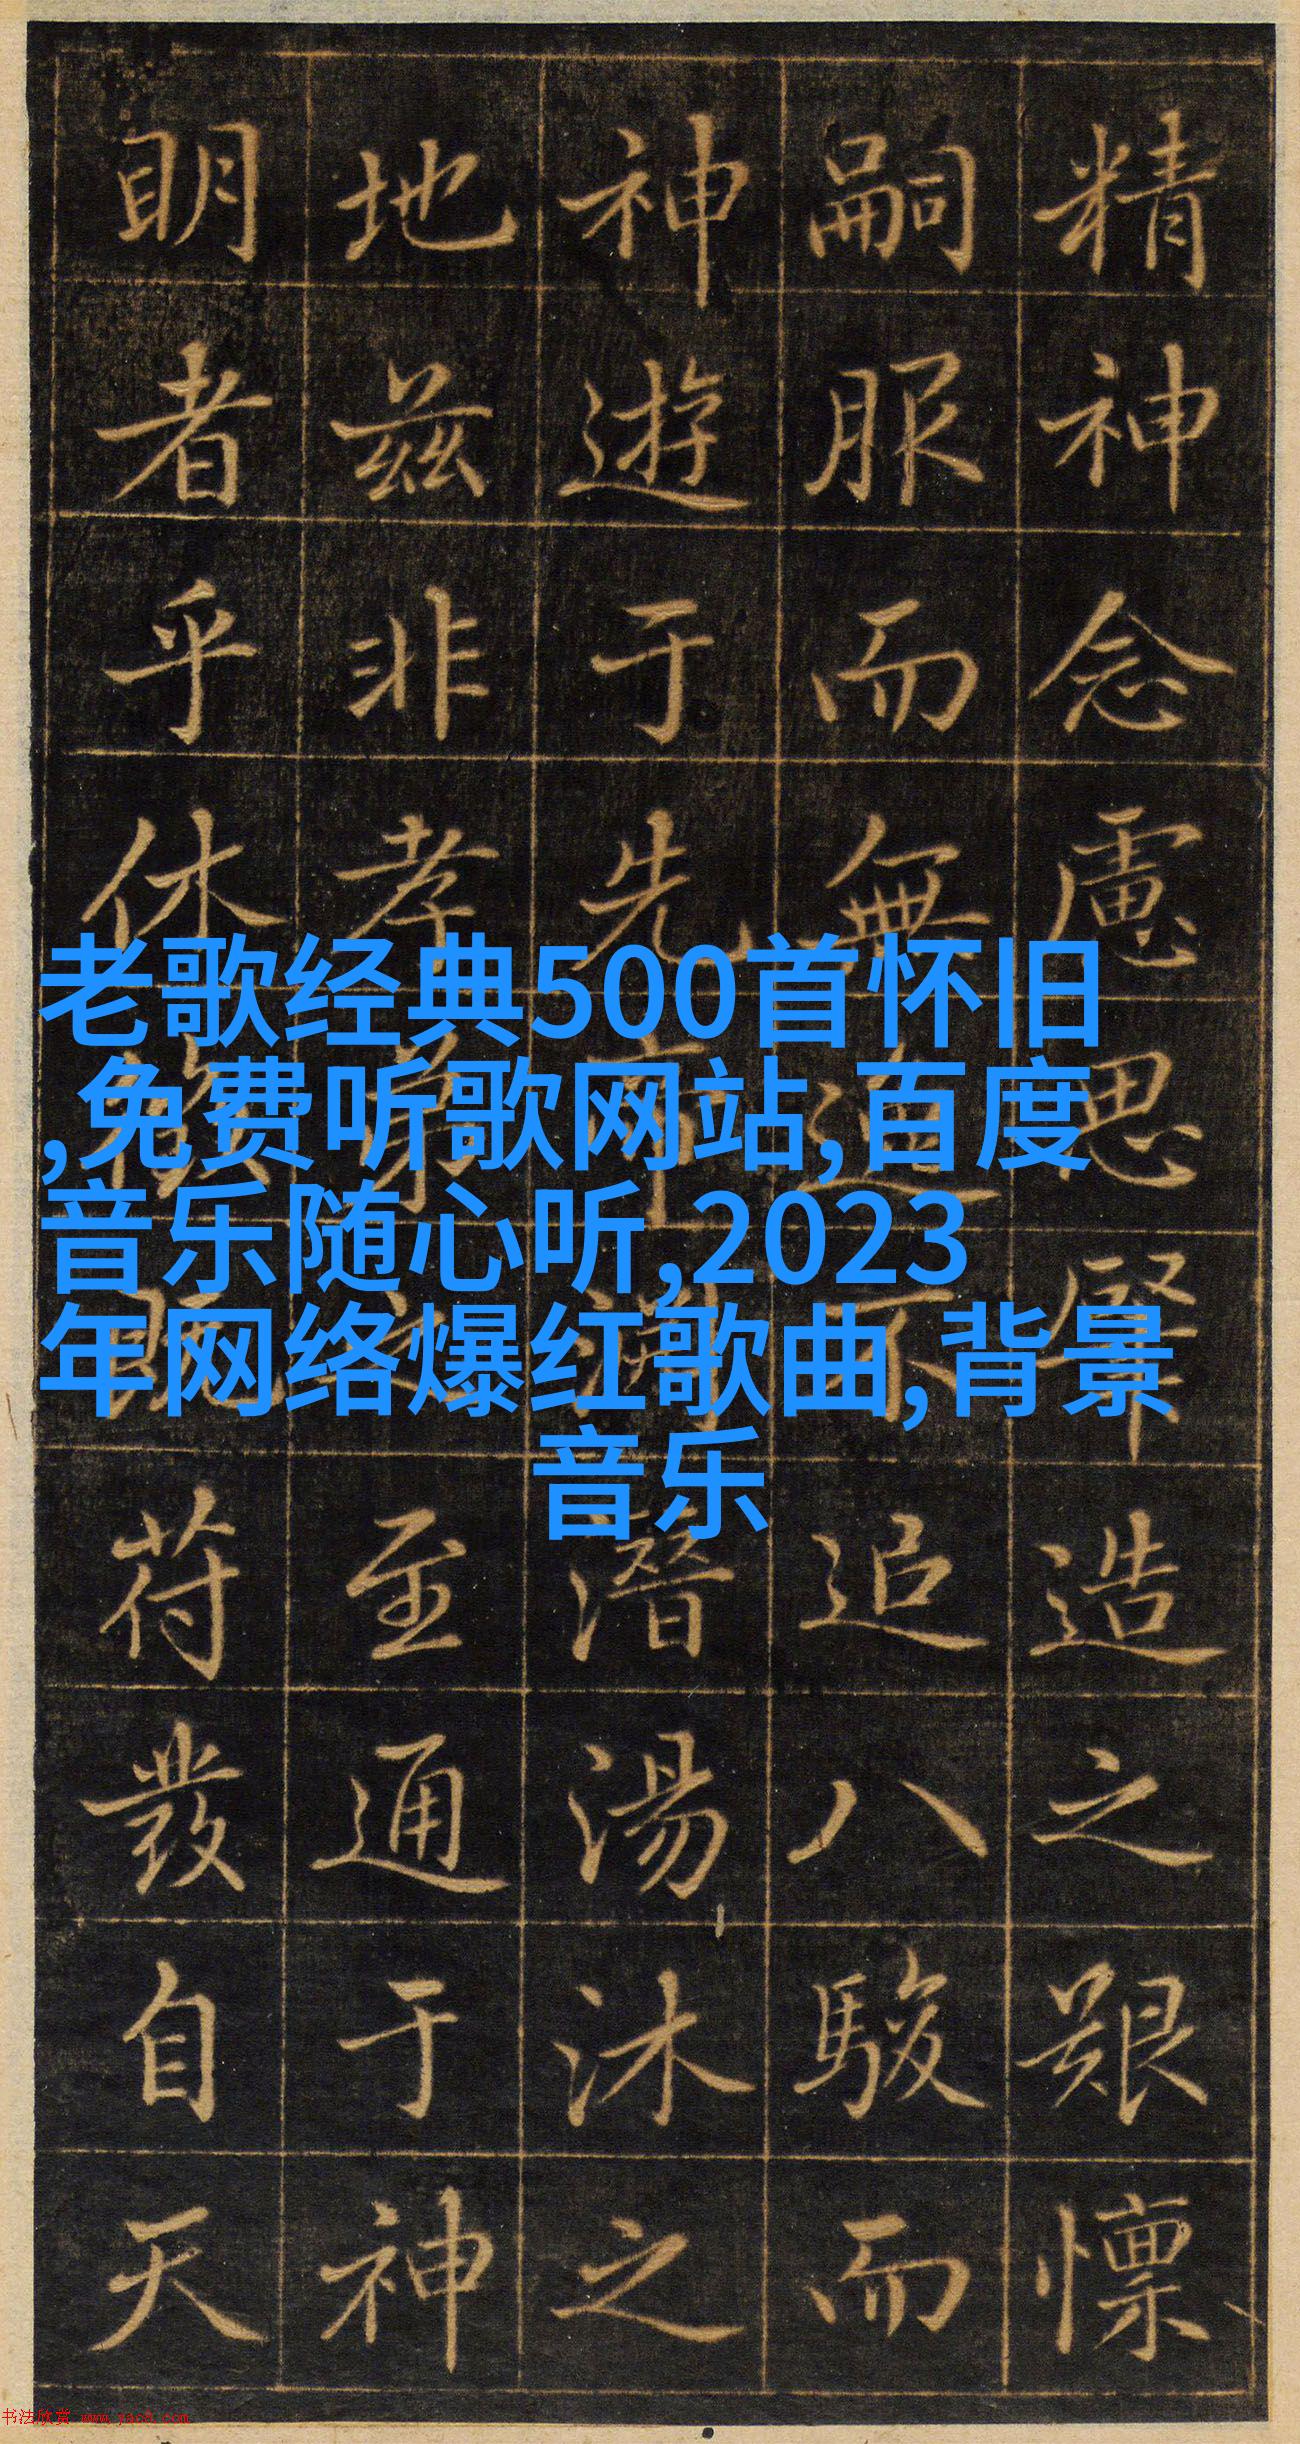 精神念慮思肇造之艱懍
嗣服而無不追八駿而
神遊于先潛湯沐之
地兹非孝弟之至通于神
明者乎休既苻發自天
老歌经典500首怀旧
,免费听歌网站,百度
音乐随心听,2023
年网络爆红歌曲,背景
音乐
书法欣赏 www.yac8.com